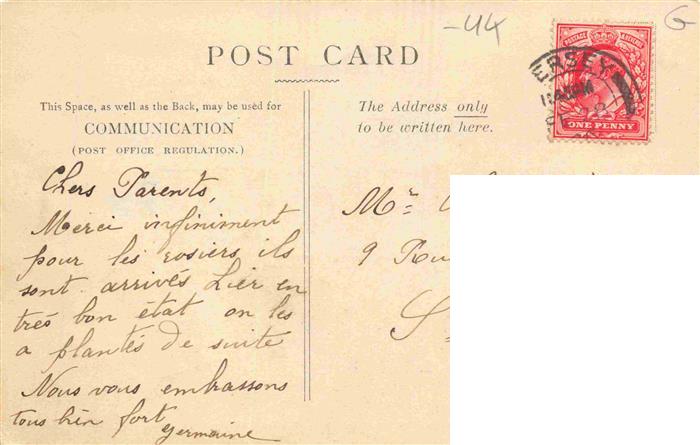 -44
G
POST CARD
POSTAGE & REVENUE
ERSEY
ONE PENNY
This Space, as well as the Back, may be used for
COMMUNICATION
(POST OFFICE REGULATION.)
The Address only
to be written here.
Chers Parents,
Merci infiniment
pour les rosiers ils
sont arrivés hier en
très bon état on les
a plantés de suite
Nous vous embrassons
tous bien fort
Germaine
Mr
9 Ru
S